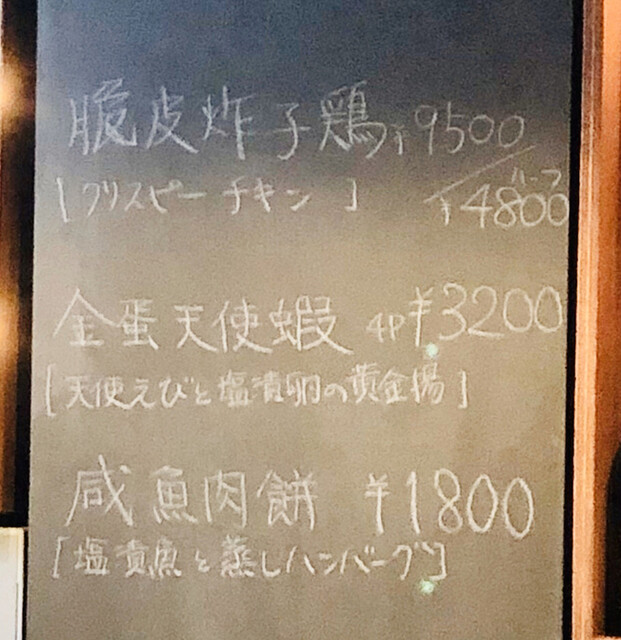 脆皮炸子鶏 ¥9500
[クリスピーチキン] ハーフ ¥4800
金蛋天使蝦 4P ¥3200
[天使えびと塩漬卵の黄金揚]
咸魚肉餅 ¥1800
[塩漬魚と蒸しハンバーグ]